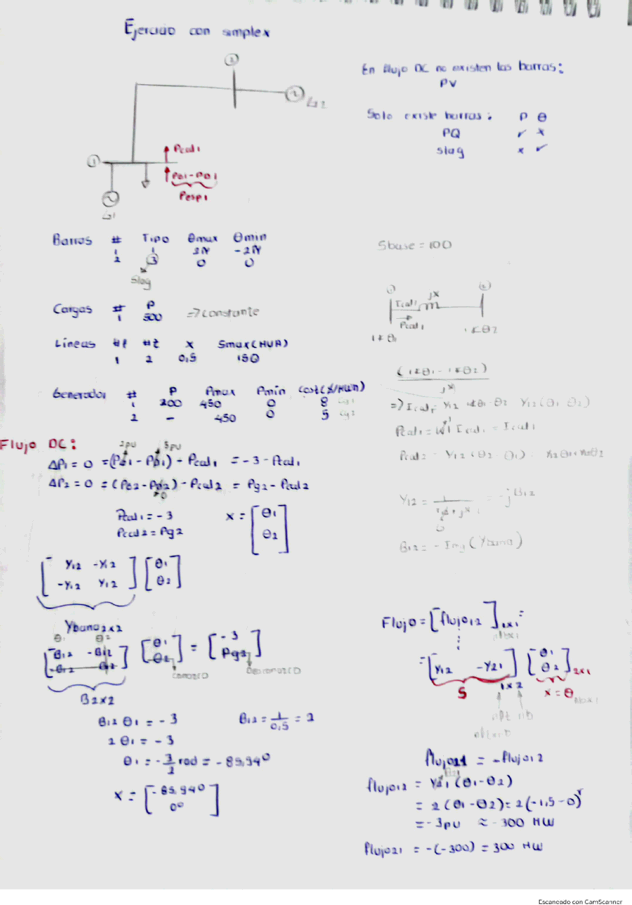 Ejercicio con simplex
En flujo DC no existen las barras:
PV
Solo existe barras: P θ
PQ ✓ x
slag x ✓
②
G2
①
Pcal1
PG1-PD1
Pesp1
G1
Barras # Tipo θmax θmin
1 1 2π -2π
2 3 0 0
Slag
Sbase = 100
Cargas # P
1 500 => constante
Lineas #f #t x Smax(MVA)
1 2 0,5 150
Generador # P Pmax Pmin Cost($/MWh)
1 200 450 0 8 G1
2 - 450 0 5 G2
jx
Ical1
Pcal1
1∠θ1
1∠θ2
(1∠θ1 - 1∠θ2)
jx
Flujo DC:
2pu 5pu
ΔP1 = 0 = (PG1 - PD1) - Pcal1 = -3 - Pcal1
ΔP2 = 0 = (PG2 - PD2) - Pcal2 = Pg2 - Pcal2
0
Pcal1 = -3
Pcal2 = Pg2
x = [θ1
θ2]
B12 = - Img (Ybarra)
[Y12 -Y12
-Y12 Y12] [θ1
θ2]
Ybarra2x2
θ1 θ2
[B12 -B12
-B12 B12] [θ1
θ2] = [-3
Pg2]
conocido
Desconocido
B2x2
B12 θ1 = -3
B12 = 1/0,5 = 2
2 θ1 = -3
θ1 = -3/2 rad = -85,94°
x = [-85,94°
0°]
Flujo = [flujo12]1x1 =
= [Y12 -Y21]1x2 [θ1
θ2]2x1
S
x = θ
flujo21 = -flujo12
flujo12 = Y21 (θ1-θ2)
= 2 (θ1 - θ2) = 2(-1,5 - 0)
= -3pu ≈ -300 MW
flujo21 = -(-300) = 300 MW
Escaneado con CamScanner